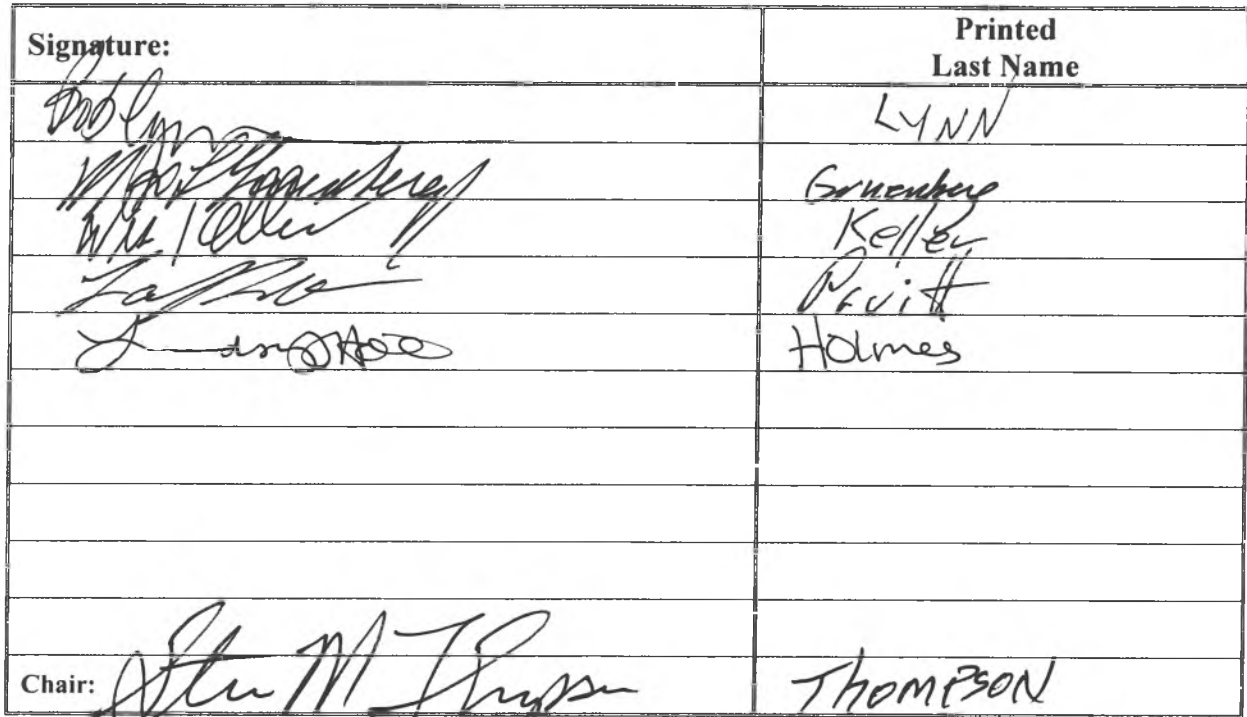 Signature:
Printed
Last Name
Bob Lynn
LYNN
Gruenberg
Keller
Pruitt
Holmes
Chair:
Steve M Thompson
THOMPSON